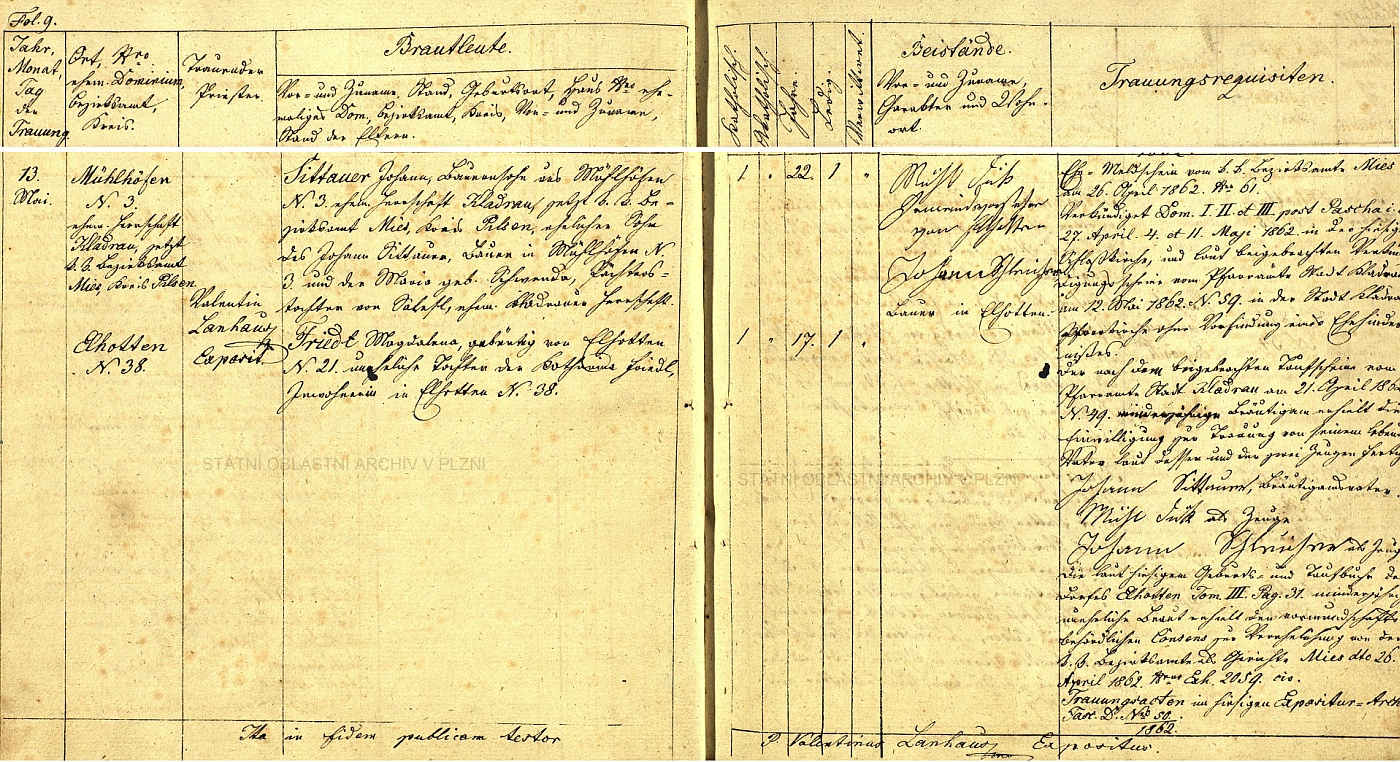 Fol. 9.
Jahr,
Monat,
Tag
der
Trauung.
Ort, Nro
ehem. Dominium,
Bezirksamt,
Kreis.
Trauender
Priester.
Brautleute.
Vor- und Zuname, Stand, Geburtsort, Haus Nro ehe-
maliges Dom, Bezirksamt, Kreis, Vor- und Zuname,
Stand der Eltern.
Katholisch.
Akatholisch.
Jahre.
Ledig.
Verwittwet.
Beistände.
Vor- und Zuname,
Charakter und Wohn-
ort.
Trauungsrequisiten.
13.
Mai.
Mühlhöfen
N. 3.
ehem. Herrschaft
Kladrau, jetzt
k. k. Bezirksamt
Mies, Kreis Pilsen.
Elhotten
N. 38.
Valentin
Lanhaus
Exposit.
Sittauer Johann, Bauerssohn aus Mühlhöfen
N. 3. ehem. Herrschaft Kladrau, jetzt k. k. Be-
zirksamt Mies, Kreis Pilsen, ehelicher Sohn
des Johann Sittauer, Bauer in Mühlhöfen N.
3. und der Maria geb. Schwenda,
tochter von ehem. Kladrauer Herrschaft.
Friedl Magdalena, gebürtig von Elhotten
N. 21. uneheliche Tochter der Katharina Friedl,
Inwohnerin in Elhotten N. 38.
1 " 22. 1 "
1 " 17. 1 "
Gemeindevorsteher
von
Johann
Bauer in Elhotten.
Ehe-Meldschein vom k. k. Bezirksamte Mies
am 26. April 1862. No 61.
Verkündiget Dom. I. II. et III. post Pascha i.
27. April. 4. et 11. Maji 1862. in der hiesig
Schloßkirche, und laut beigebrachten
vom Pfarramte Stadt Kladrau
am 12. Mai 1862. N. 59. in der Stadt Kladrau
Pfarrkirche ohne Vorfindung eines Ehehinder
nißes.
Der nach dem beigebrachten Taufscheine vom
Pfarramte Stadt Kladrau am 21. April 186
N. 49. minderjährige Bräutigam erhielt die
Einwilligung zur Trauung von seinem
Vater laut dessen und der zwei Zeugen
Johann Sittauer, Bräutigamsvater
als Zeuge
Johann als Zeug
Die laut hiesigem Geburts- und Taufbuche de
Dorfes Elhotten Tom. III. Pag. 31. minderjähr
uneheliche Braut erhielt den vormundschafts
behördlichen Consens zur Verehelichung von dem
k. k. Bezirksamte als Gerichte Mies dto 26.
April 1862. Exh. 2059. civ.
Trauungsacten im hiesigen Expositur-Arch
Fasc. D. No 50.
1862.
Ita in fidem publicam testor
P. Valentinus Lanhaus Expositus.
STÁTNÍ OBLASTNÍ ARCHIV V PLZNI
STÁTNÍ OBLASTNÍ ARCHIV V PLZNI